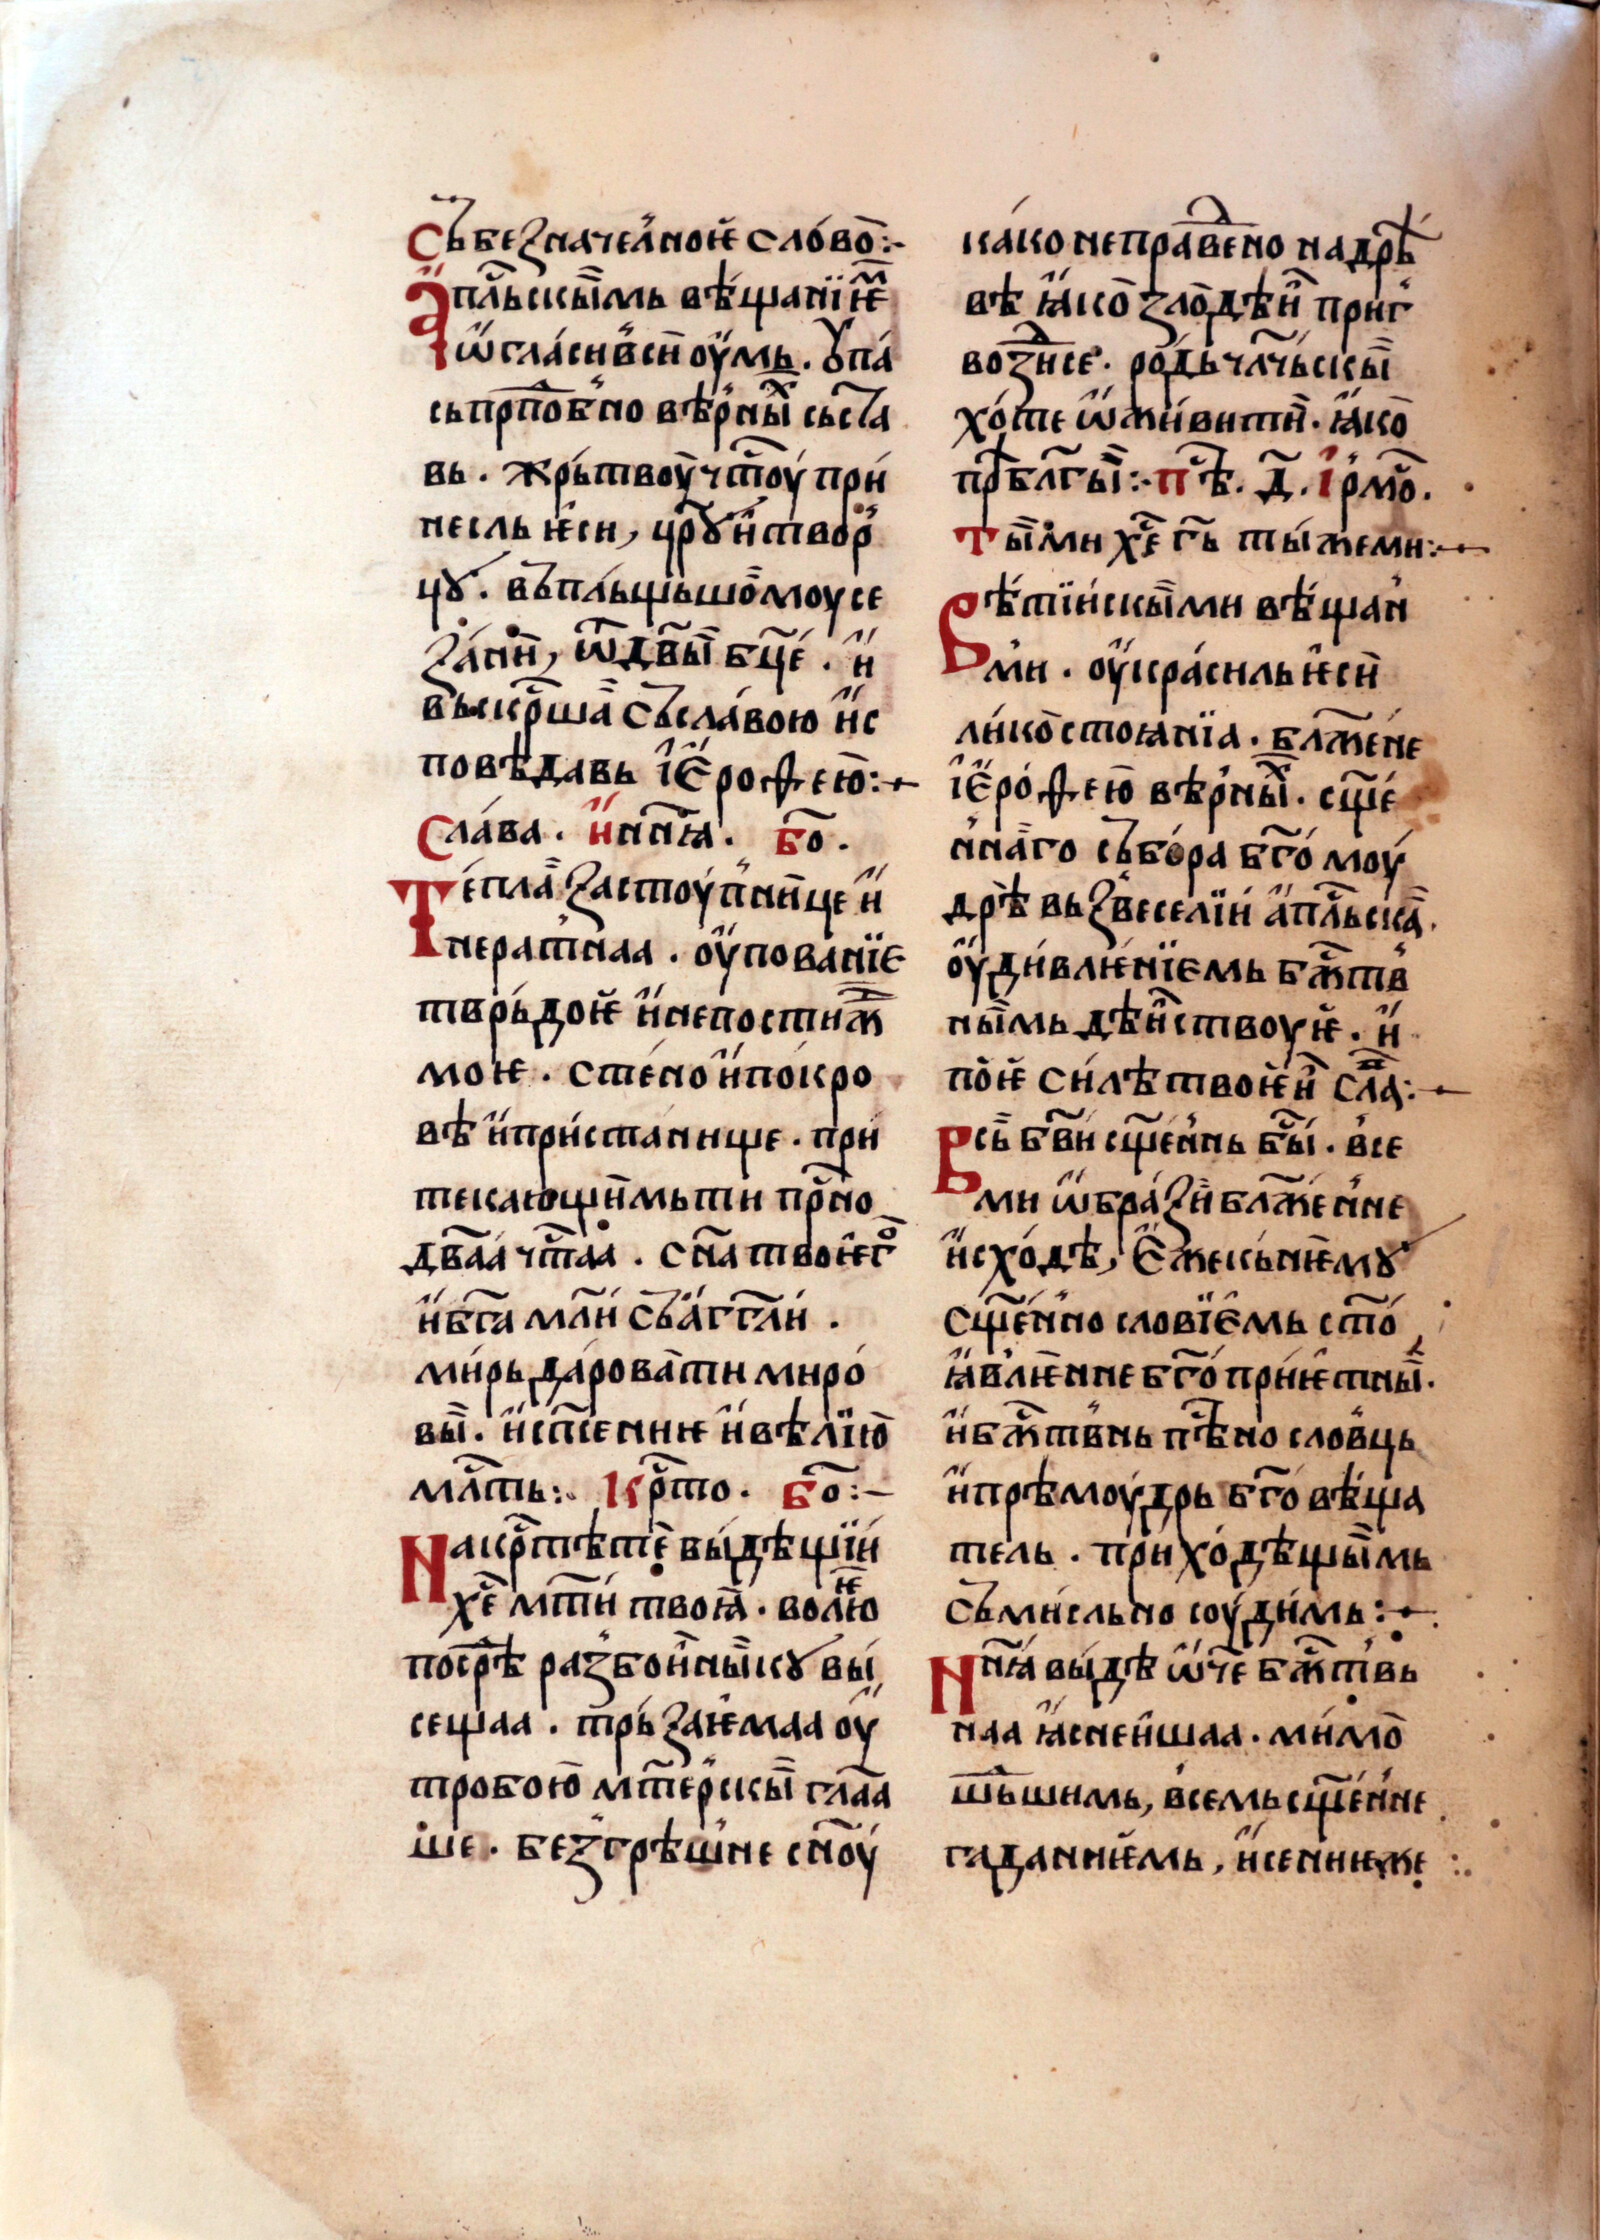 Съ без начел̾ное сло́во҃:-
А҆п҃льскы̏мь вѣ́щанїꙗ҆м
ѡ҆гласи́в сѝ оу҆мь . ꙋ҆па
сь прпⷣобно вѣр̾ны̏хь съста
вь . жрь́твоу ч҃тоу при
несль ѥси , ц҃рꙋ и҆ твор̾
цꙋ . въпль́щьшо̏моу се
за́нѝ , ѿ д҃вы̏ б҃це́ . и҆
въскр҃ша̏ съ сла́вою и҆с
повѣ́давь і҆ѥ҆роѳею҃:-
Сла́ва . и҆ н҃нꙗ . б҃о .
Те́пла̏ заступ̾нѝце и҆
нерат̾наа . оу҆пованїе
тврь́доѥ и҆ непостиж
моѥ . сте́но и҆ по́кро
вѣ и҆ при́станище . при́
текающѝмь ти пр҃но
д҃ваа́ ч҃таа . с҃на твоѥ҆гⷪ
и҆ б҃га мл҃и́ съ а҆гг҃ли .
ми́рь да́рова̏ти миро́
вы̏ . и҆ сп҃сениѥ и҆ вѣ́лїю҃
мл҃ть:. Кр҃то . б҃о:-
На кр҃тѣ те̏ ви́дѣщїи
х҃е м҃ти́ твоꙗ̏ . волею
поⷭрⷣѣ разбои̏ны̏кꙋ вы́
сещаа . трь́заѥмаа оу҆
тробою҃ мт҃ер̾скы̏ гл҃аа
ше . без̾грѣш̾не с҃ноу
ка́ко неправеⷣно на дрѣ́
вѣ ꙗ҆ко҃ зло̏дѣѝ приг̾
воз̾дисе . ро́дь чл҃чь́скы̏
хо́те ѡ҆жи́витѝ . ꙗ҆ко҃
прѣⷣбл҃гы̏:- п҃ѣ . д҃ . і҆рмо̏ .
Ты̏ ми х҃е г҃ь ты́ же ми:-
Вѣ́тїискы̏ми вѣ́щан
ми . оу҆кра́силь ѥсѝ
ли́ко̏стоꙗнїа . бл҃же́не
і҆ѥ҆ро́ѳею҃ вѣр̾ны̏хь . с҃ще́
н̾на̏го събо́ра б҃го́моу
дрѣ́ вьз̾веселїи́ а҆п҃льска̏ .
оу҆ди́влѥнїемь б҃жтв̾
ны̏мь дѣѝствоуѥ . и҆
поѥ̏ си́лѣ твоѥѝ слⷡа:-
Всь̏ б҃ви с҃щен̾нь б҃ы́ . в̾се
ми ѡ҆бра́зѝ бл҃жен̾не
и҆схо́дѣ , ѥ҆же кь нѥмꙋ
с҃щен̾но словїе҆мь с҃то́
ꙗ҆в̾лѥнне б҃го́прїѥтны̏ .
и҆ б҃жтв̾нь п҃ѣно слов̾ць
и҆ прѣмоу́дрь б҃го́вѣ́ща
тель . при́хо́дѣщы̏мь
съмисль́но соу́ди́мь:-
Н҃нꙗ́ ви́дѣ ѡ҆ч҃е б҃жтв̾ь
наа ꙗ҆снеи́шаа . ми́мо҃
шь́шимь , в̾семь с҃щен̾не
гаданиѥ҆мь , и҆ сениѥже :.